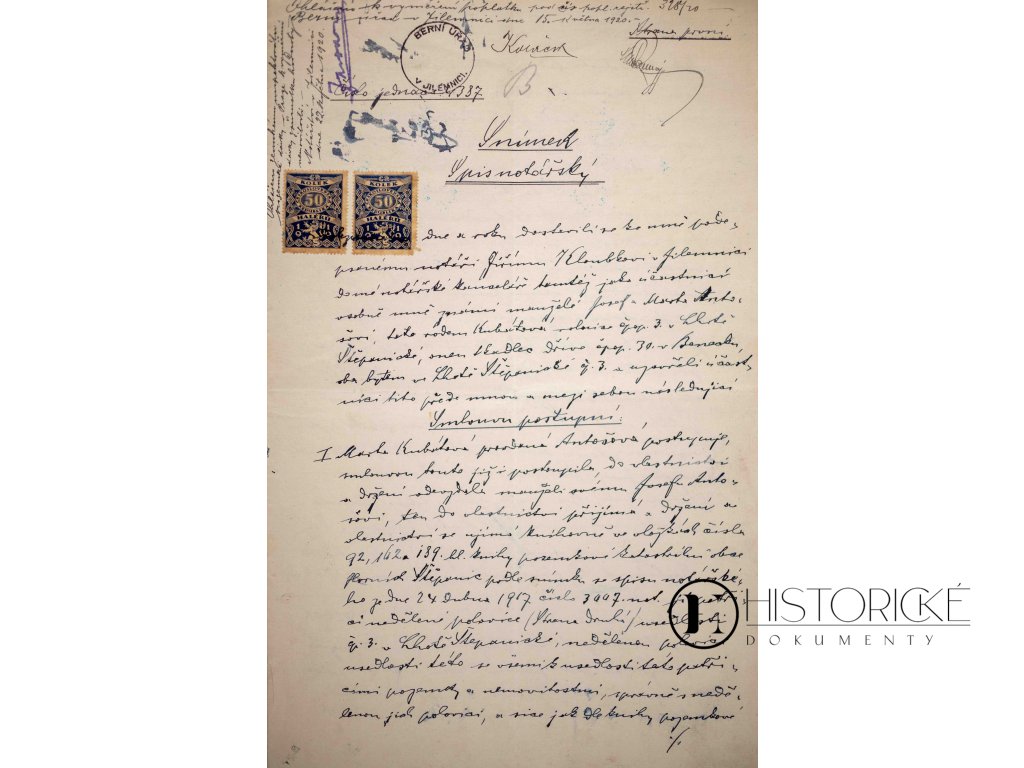 Ohlášeno k vyměření poplatku pod čís. popl. rejstř. 328/20
Berní úřad v Jilemnici dne 15. května 1920.
Strana první.
Kovářík
BERNÍ ÚŘAD
V JILEMNICI.
Číslo jednací: 4337.
B
Snímek
Spis notářský
KOLEK
50
HALÉŘŮ
KOLEK
50
HALÉŘŮ
dne a roku dostavili se ke mně pode-
psanému notáři Jiřímu Kloubkovi v Jilemnici
do mé notářské kanceláře tamtéž jako účastníci
osobně mně známí manželé Josef a Marta Anto-
šovi, tato rodem Kubátová, rolníci čp. 3. v Lhotě
Štěpanické, onen Kadlec dříve čp. 30. v Benecku,
oba bytem ve Lhotě Štěpanické č. 3. a uzavřeli účast-
níci tito přede mnou a mezi sebou následující
Smlouvu postupní:
I Marta Kubátová provdaná Antošová, postupuje,
smlouvou touto již i postoupila, do vlastnictví
a držení odevzdala manželi svému Josefu Anto-
šovi, ten do vlastnictví přijímá a držení a
vlastnictví se ujímá knihovně ve vložkách čísla
92, 142 a 189. hl. knihy pozemkové katastrální obce
Horních Štěpanic podle snímku se spisu notářské-
ho ze dne 24 dubna 1917. číslo 3997. not. jí patří-
cí nedělené polovice (Strana druhá) usedlosti
čp. 3. v Lhotě Štěpanické, nedělenou polovici
usedlosti této se všemi k usedlosti této patří-
cími pozemky a nemovitostmi, správně s nedě-
lenou jich polovicí, a sice jak dle knihy pozemkové
./.
HISTORICKÉ
DOKUMENTY